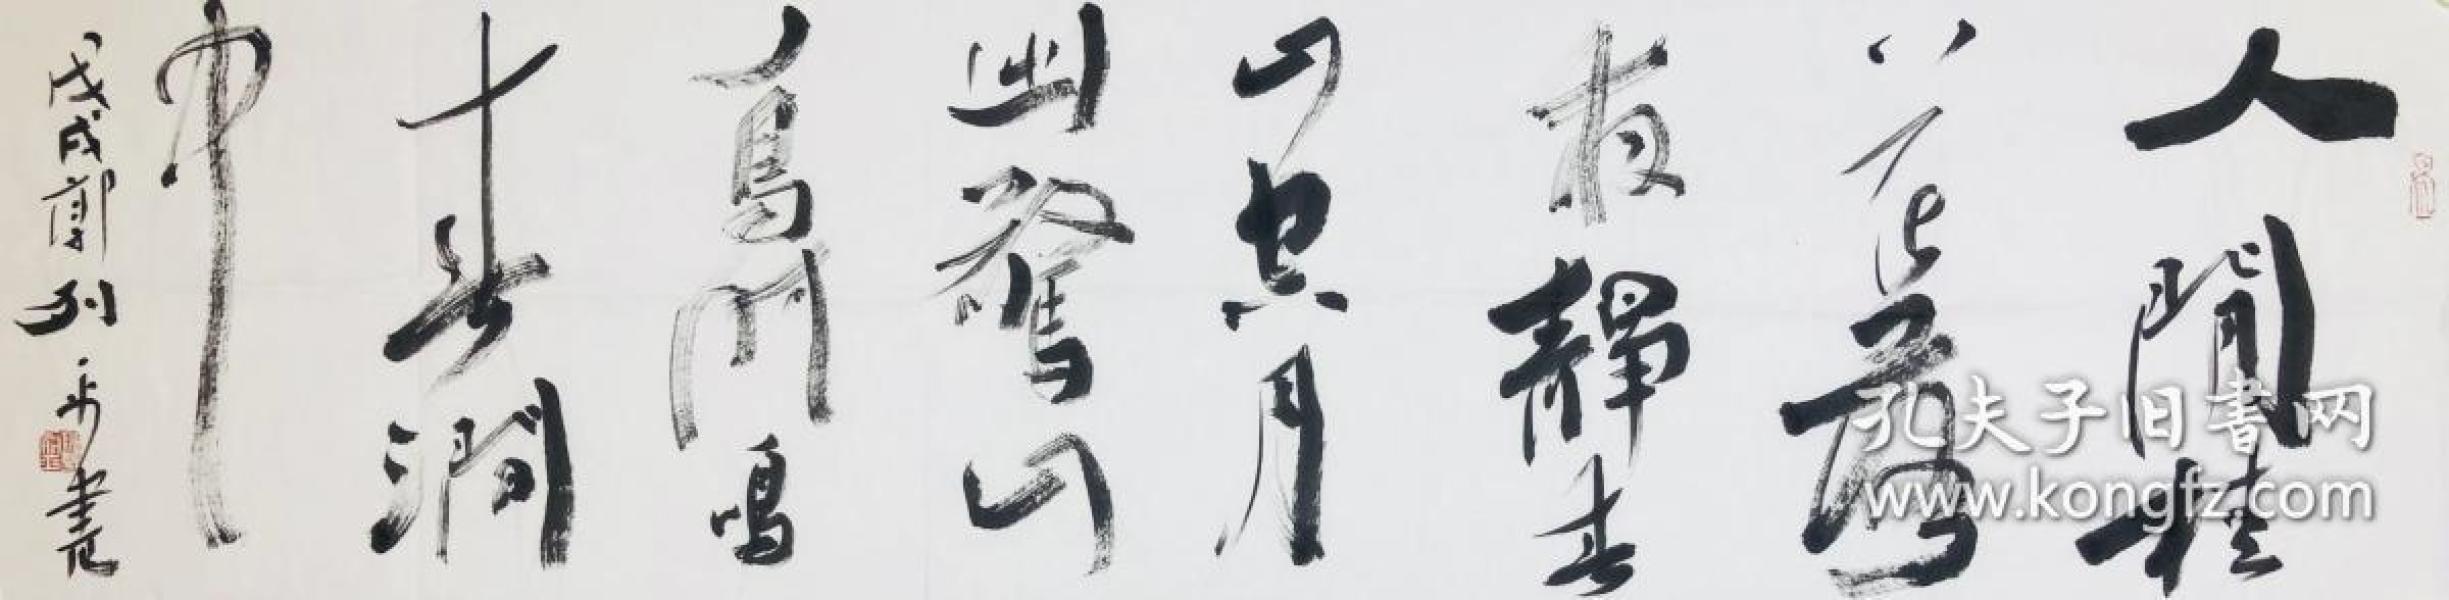 人閒桂
花落
夜靜春
山空月
出驚山
鳥時鳴
春澗
中
戊戌郭列平書
孔夫子旧書网
www.kongfz.com